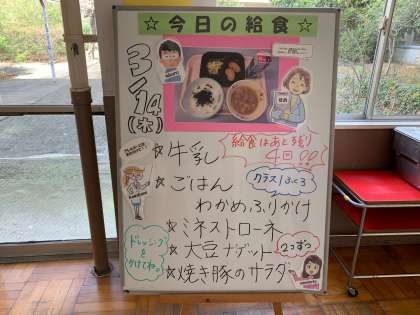 ☆今日の給食☆
3/14(木)
給食はあと残り
4回!!
☆牛乳
☆ごはん
わかめふりかけ
クラス1ふくろ
☆ミネストローネ
☆大豆ナゲット
2こずつ
☆焼き豚のサラダ
ドレッシング
を
かけてね。